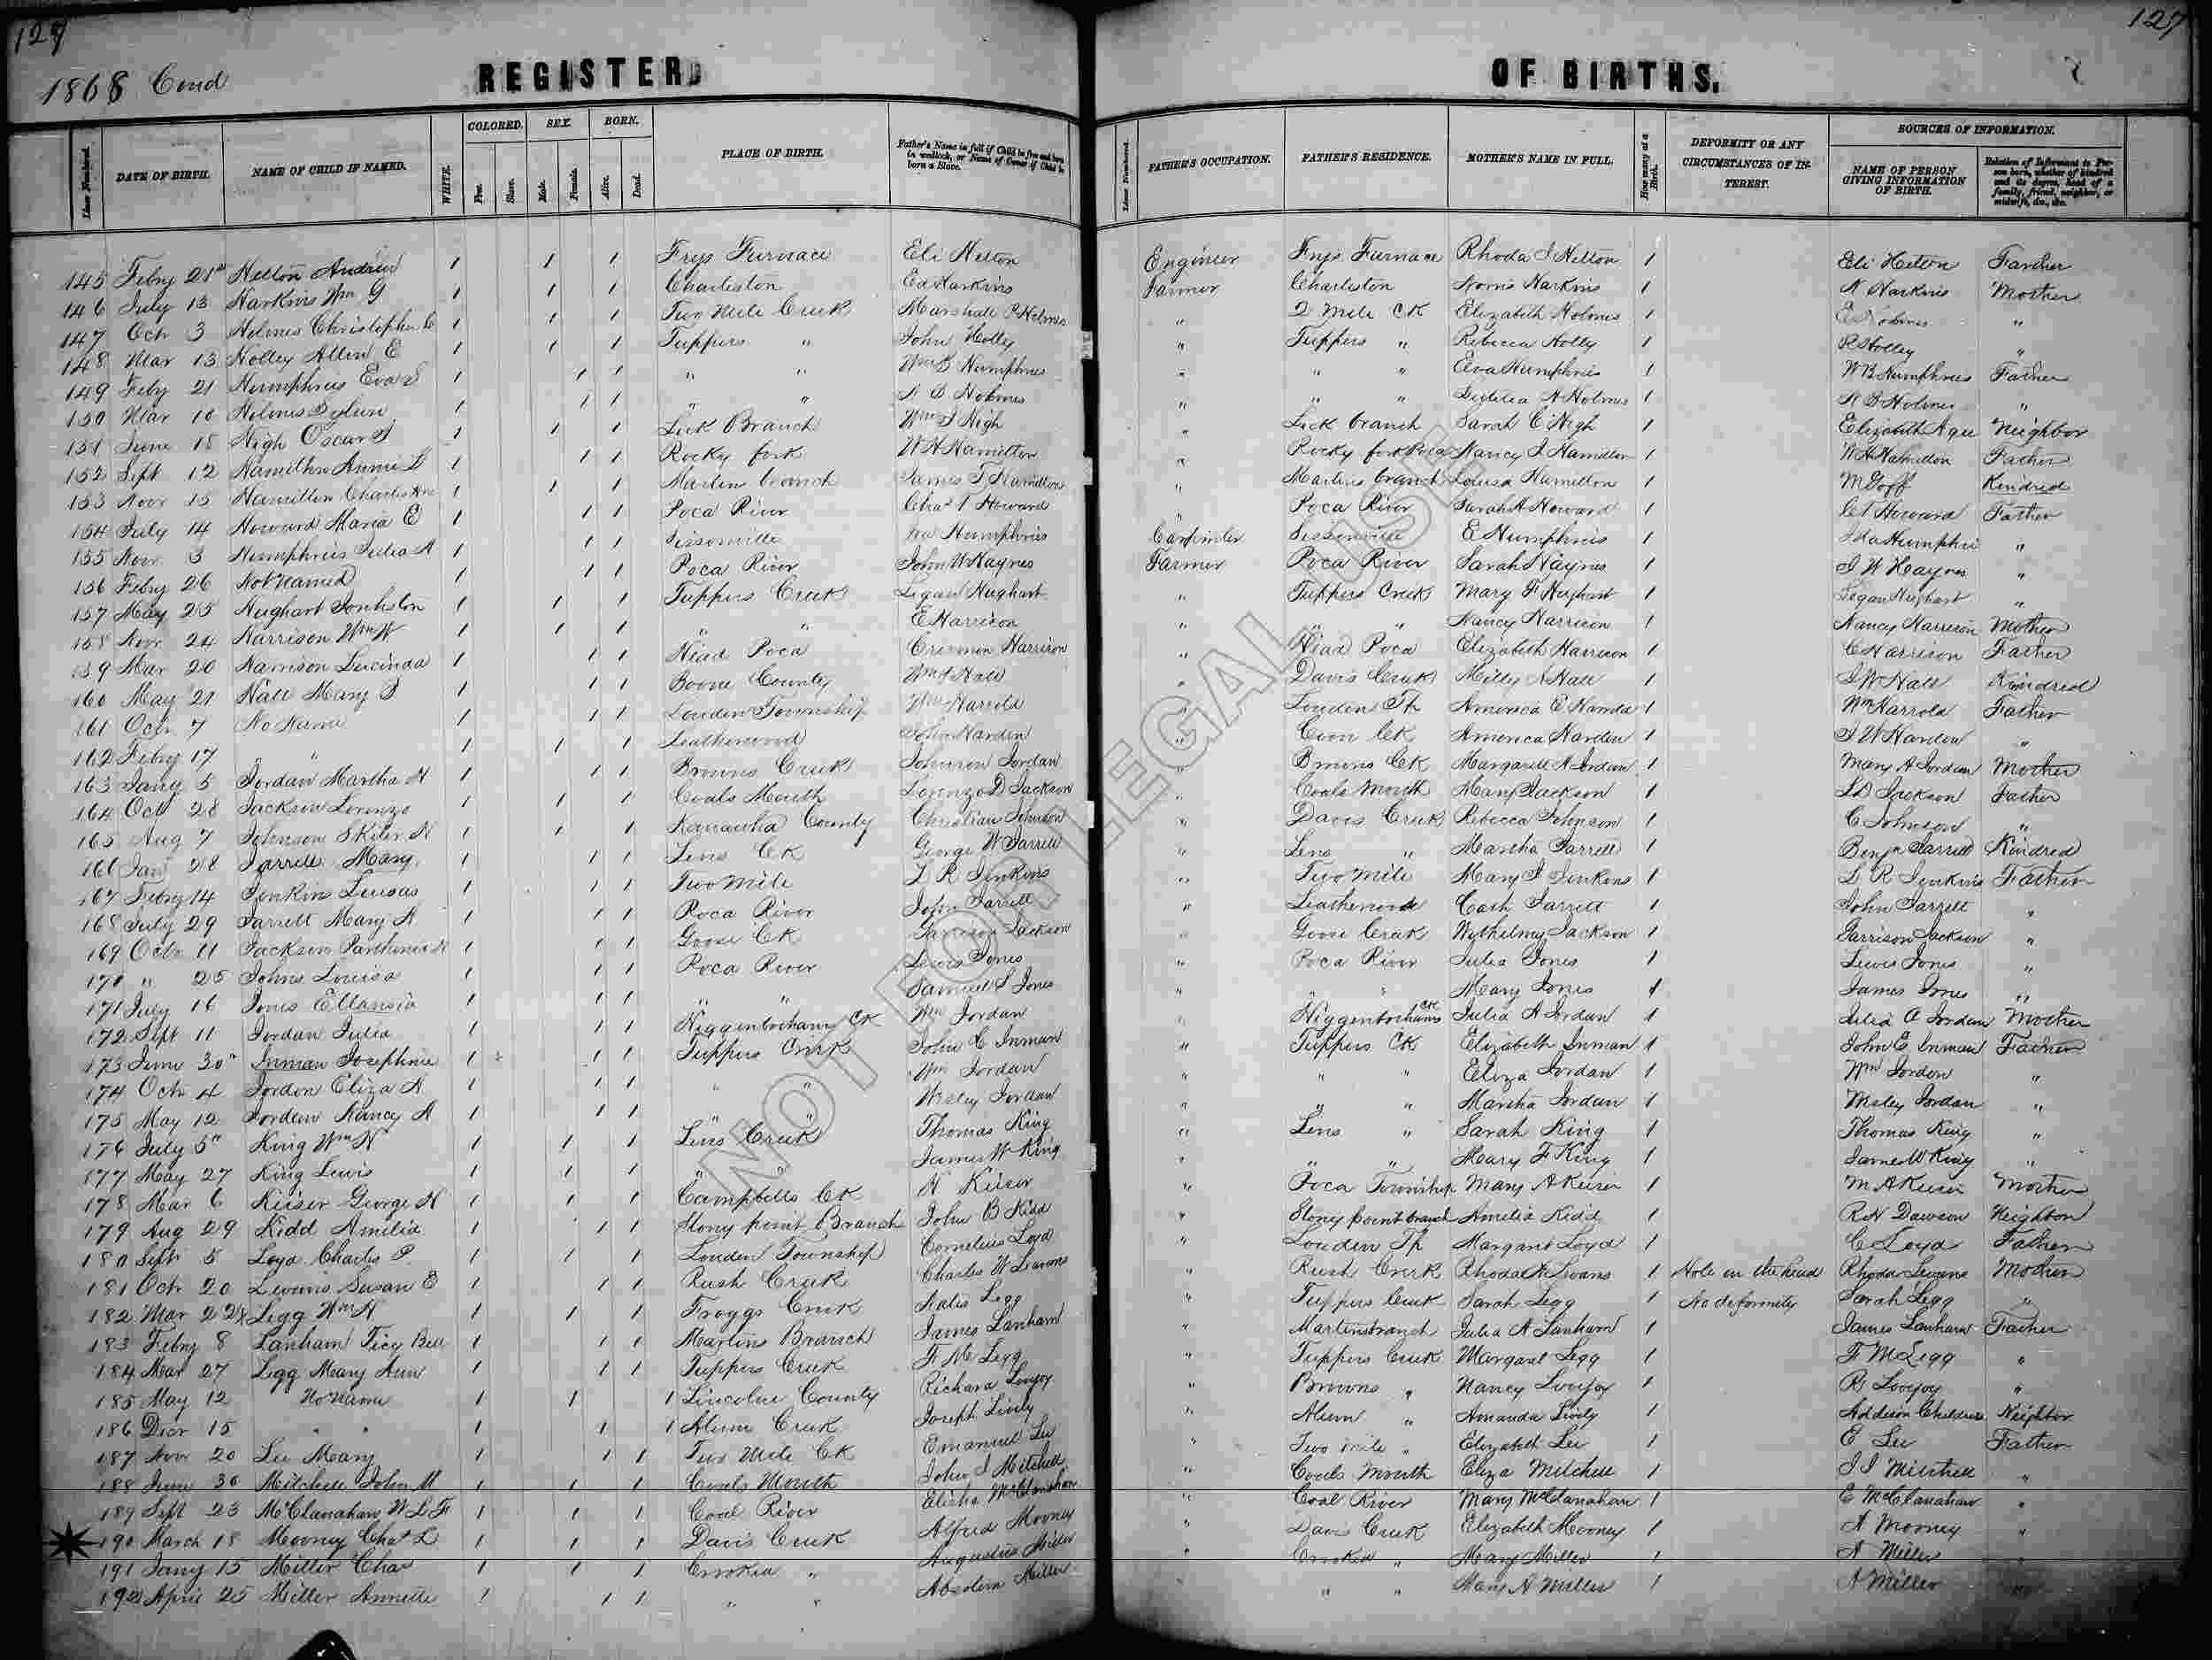 127
127
1868 Cond
REGISTER OF BIRTHS.
Lines Numbered. DATE OF BIRTH. NAME OF CHILD IF NAMED. WHITE. COLORED. Free. Slave. SEX. Male. Female. BORN. Alive. Dead. PLACE OF BIRTH. Father's Name in full if Child be free and born in wedlock, or Name of Owner if Child be born a Slave. Lines Numbered. FATHER'S OCCUPATION. FATHER'S RESIDENCE. MOTHER'S NAME IN FULL. How many at a Birth. DEFORMITY OR ANY CIRCUMSTANCES OF INTEREST. SOURCES OF INFORMATION. NAME OF PERSON GIVING INFORMATION OF BIRTH. Relation of Informant to Person born, whether of kindred and its degree, head of a family, friend, neighbor, or midwife, &c., &c.
145 Febry 21st Helton Andrew 1 1 1 Frys Furnace Eli Helton Engineer Frys Furnace Rhoda J Hilton 1 Eli Helton Farther
146 July 13 Harkins Wm G 1 1 1 Charleston Ed Harkins Farmer Charliston Harkins 1 N Harkins Mother
147 Octr 3 Holmes Christopher C 1 1 1 Two Mile Creek Marshall P Holmes " 2 Mile CK Elizabeth Holmes 1 E Holmes "
148 Mar 13 Holley Allen E 1 1 1 Tuppers " John Holly " Tuppers " Rebecca Holly 1 R Holley "
149 Feby 21 Humphries Eva S 1 1 1 " " Wm B Humphries " " " Eva Humphries 1 W B Humphries Father
150 Mar 10 Holmes 1 1 1 " " Holmes " " " Holmes 1 Holmes "
151 June 18 High Oscar S 1 1 1 Lick Branch Wm S High " Lick branch Sarah C High 1 Elizabeth Agee Neighbor
152 Sept 12 Hamilton Annie L 1 1 1 Rocky fork W H Hamilton " Rocky fork Poca Nancy J Hamilton 1 W H Hamilton Father
153 Novr 15 Hamilton Charles 1 1 1 Martin branch James T Hamilton " Martins branch Louisa Hamilton 1 M Goff Kindred
154 July 14 Howard Maria E 1 1 1 Poca River Chas Howard " Poca River Sarah A Howard 1 Howard Father
155 Novr 3 Humphries Julia A 1 1 1 Sissonville Humphries Carpinter Sissonville E Humphries 1 Humphries "
156 Febry 26 Not Named 1 1 1 Poca River John W Haynes Farmer Poca River Sarah Haynes 1 J W Haynes "
157 May 25 Hughart Jonhston 1 1 1 Tuppers Creek Logan Hughart " Tuppers Creek Mary F Hughart 1 Logan Hughart "
158 Novr 24 Harrison Wm W 1 1 1 " " E Harrison " " " Nancy Harrison 1 Nancy Harrison Mother
159 Mar 20 Harrison Lucinda 1 1 1 Head Poca Harrison " Head Poca Elizabeth Harrison 1 C Harrison Father
160 May 21 Hall Mary S 1 1 1 Boone County Hall " Davis Creek Milly Hall 1 J W Hall Kindred
161 Octr 7 No Name 1 1 1 Louden Township Wm Harrold " Louden Tp America E 1 Wm Harrold Father
162 Febry 17 " 1 1 1 Leatherwood John Harden " Coon CK America Harden 1 J W Harden "
163 Jany 5 Jordan Martha N 1 1 1 Browns Creek Johnson Jordan " Browns CK Margarett A Jordan 1 Mary A Jordan Mother
164 Oct 28 Jackson Lorenzo 1 1 1 Coals Mouth Lorenzo D Jackson " Coals Mouth Mary Jackson 1 L D Jackson Father
165 Aug 7 Johnson N 1 1 1 Kanawha County Christian Johnson " Davis Creek Rebecca Johnson 1 C Johnson "
166 Jan 28 Jarrell Mary 1 1 1 Lens CK George W Jarrell " Lens " Martha Jarrell 1 Benjn Jarrell Kindred
167 Febry 14 Jenkins Lucas 1 1 1 Two Mile L R Jenkins " Two Mile Mary J Jenkins 1 L R Jenkins Father
168 July 29 Jarrett Mary A 1 1 1 Poca River John Jarrett " Leatherwood Cash Jarrett 1 John Jarrett "
169 Octr 11 Jackson Parthenia 1 1 1 Goose CK Garrison Jackson " Goose Creek Wilhelmy Jackson 1 Garrison Jackson "
170 " 25 Johns Louisa 1 1 1 Poca River Lewis Jones " Poca River Julia Jones 1 Lewis Jones "
171 July 16 Jones 1 1 1 " " Samuel S Jones " " " Mary Jones 1 James Jones "
172 Sept 11 Jordan Julia 1 1 1 Higgenbothams CK Wm Jordan " Higgenbothams CK Julia A Jordan 1 Julia A Jordan Mother
173 June 30th Inman Josephine 1 1 1 Tuppers Creek John C Inman " Tuppers CK Elizabeth Inman 1 John E Inman Father
174 Octr 4 Jordon Eliza A 1 1 1 " " Wm Jordan " " " Eliza Jordan 1 Wm Jordon "
175 May 12 Jordan Nancy A 1 1 1 " " Wesley Jordan " " " Martha Jordan 1 Wesley Jordan "
176 July 5th King Wm H 1 1 1 Lens Creek Thomas King " Lens " Sarah King 1 Thomas King "
177 May 27 King Lewis 1 1 1 " " James W King " " " Mary F King 1 James W King "
178 Mar 6 Keiser George H 1 1 1 Campbells CK H Keiser " Poca Township Mary A Keiser 1 M A Keiser Mother
179 Aug 29 Kidd Amelia 1 1 1 Stony point Branch John B Kidd " Stony point branch Amelia Kidd 1 R H Dawson Neighbor
180 Sept 5 Loyd Charles P 1 1 1 Louden Township Cornelius Loyd " Louden Tp Margaret Loyd 1 C Loyd Father
181 Octr 20 Levans Susan E 1 1 1 Rush Creek Charles W Levans " Rush Creek Rhoda Levans 1 Hole in the head Rhoda Levans Mother
182 Mar 228 Legg Wm H 1 1 1 Froggs Creek Legg " Tuppers Creek Sarah Legg 1 No deformity Sarah Legg "
183 Febry 8 Lanham Ticy Bell 1 1 1 Martins Branch James Lanham " Martins branch Julia A Lanham 1 James Lanham Father
184 Mar 27 Legg Mary Ann 1 1 1 Tuppers Creek F M Legg " Tuppers Creek Margaret Legg 1 F M Legg "
185 May 12 No Name 1 1 1 Lincoln County Richard Lovejoy " Browns " Nancy Lovejoy 1 R Lovejoy "
186 Decr 15 " " 1 1 1 Alum Creek Joseph Lively " Alum " Amanda Lively 1 Addison Childress Neighbor
187 Novr 20 Lee Mary 1 1 1 Two Mile CK Emanuel Lee " Two Mile " Elizabeth Lee 1 E Lee Father
188 June 30 Mitchell John M 1 1 1 Coals Mouth John J Mitchell " Coals Mouth Eliza Mitchell 1 J J Mitchell "
189 Sept 23 McClanahan W L F 1 1 1 Coal River Elisha McClanahan " Coal River Mary McClanahan 1 E McClanahan "
190 March 18 Mooney Chas L 1 1 1 Davis Creek Alfred Mooney " Davis Creek Elizabeth Mooney 1 A Mooney "
191 Jany 15 Miller Chas 1 1 1 Crooked " Augustus Miller " Crooked " Mary Miller 1 A Miller "
192 April 25 Miller Annette 1 1 1 " " Absolem Miller " " Mary A Miller 1 A Miller "
NOT FOR LEGAL USE